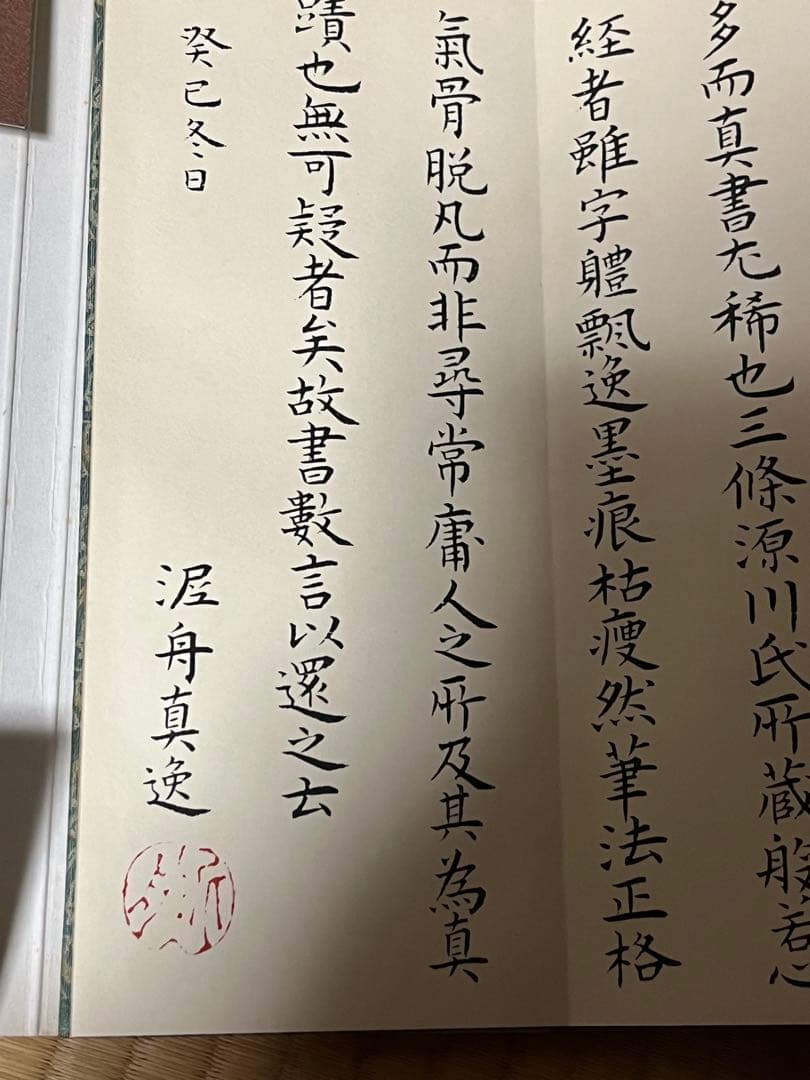 多而真書尤稀也三條源川氏所蔵般若心
経者雖字軆飄逸墨痕枯痩然筆法正格
氣骨脱凡而非尋常庸人之所及其為真
蹟也無可疑者矣故書數言以還之云
癸巳冬日
渥舟真逸